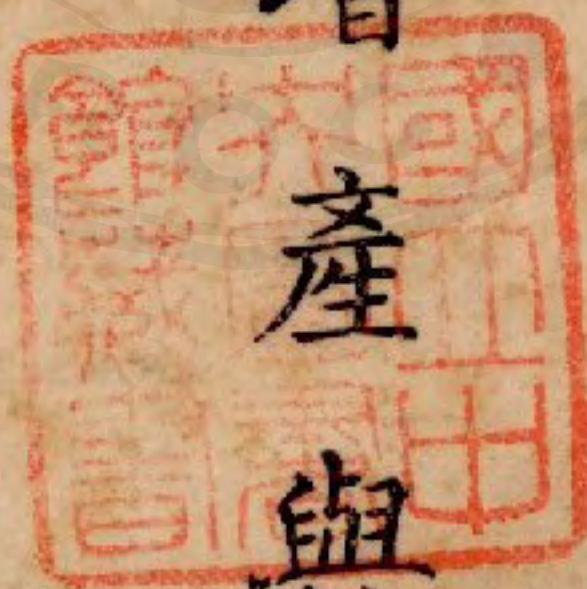 產
國立中
央圖書
館藏書